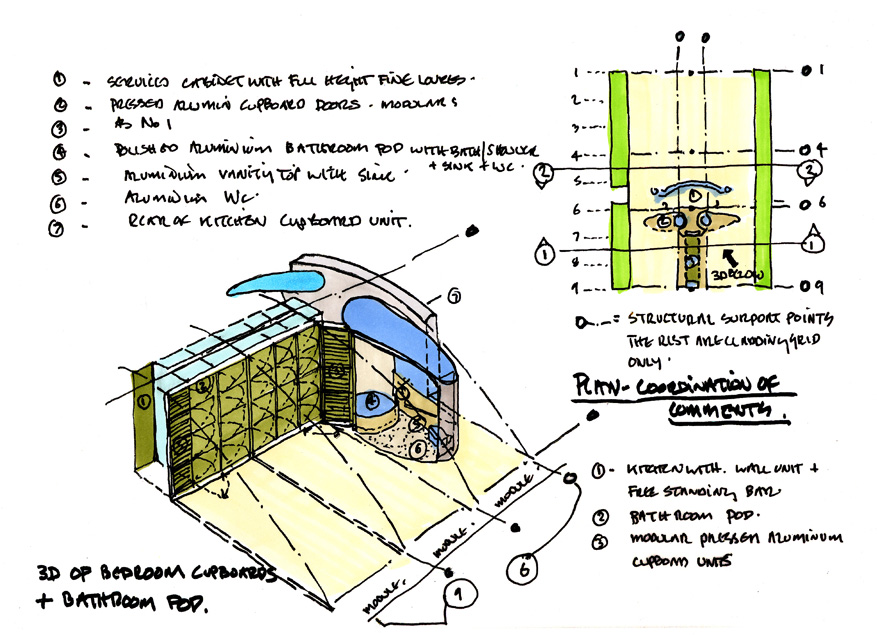 ① - SERVICES CABINET WITH FULL HEIGHT FINE LOUVRES.
② - PRESSED ALUMIN CUPBOARD DOORS - MODULARS
③ - AS NO 1
④ - ALUMINIUM BATHROOM POD WITH BATH/SHOWER
+ SINK + WC.
⑤ - ALUMINIUM VANITY TOP WITH SINK.
⑥ - ALUMINIUM WC.
⑦ - REAR OF KITCHEN CUPBOARD UNIT.
1 01
2
3
4 04
2 2
5
6 06
7
1 1
8
3D BELOW
9 09
= STRUCTURAL SUPPORT POINTS
THE REST ARE CLADDING GRID
ONLY.
PLAN - COORDINATION OF
COMMENTS.
① - KITCHEN WITH WALL UNIT +
FREE STANDING BAR
② BATHROOM POD.
③ MODULAR PRESSED ALUMINUM
CUPBOARD UNITS
7
1
2
4
5
6
MODULE.
MODULE.
MODULE.
6
9
3D OF BEDROOM CUPBOARDS
+ BATHROOM POD.